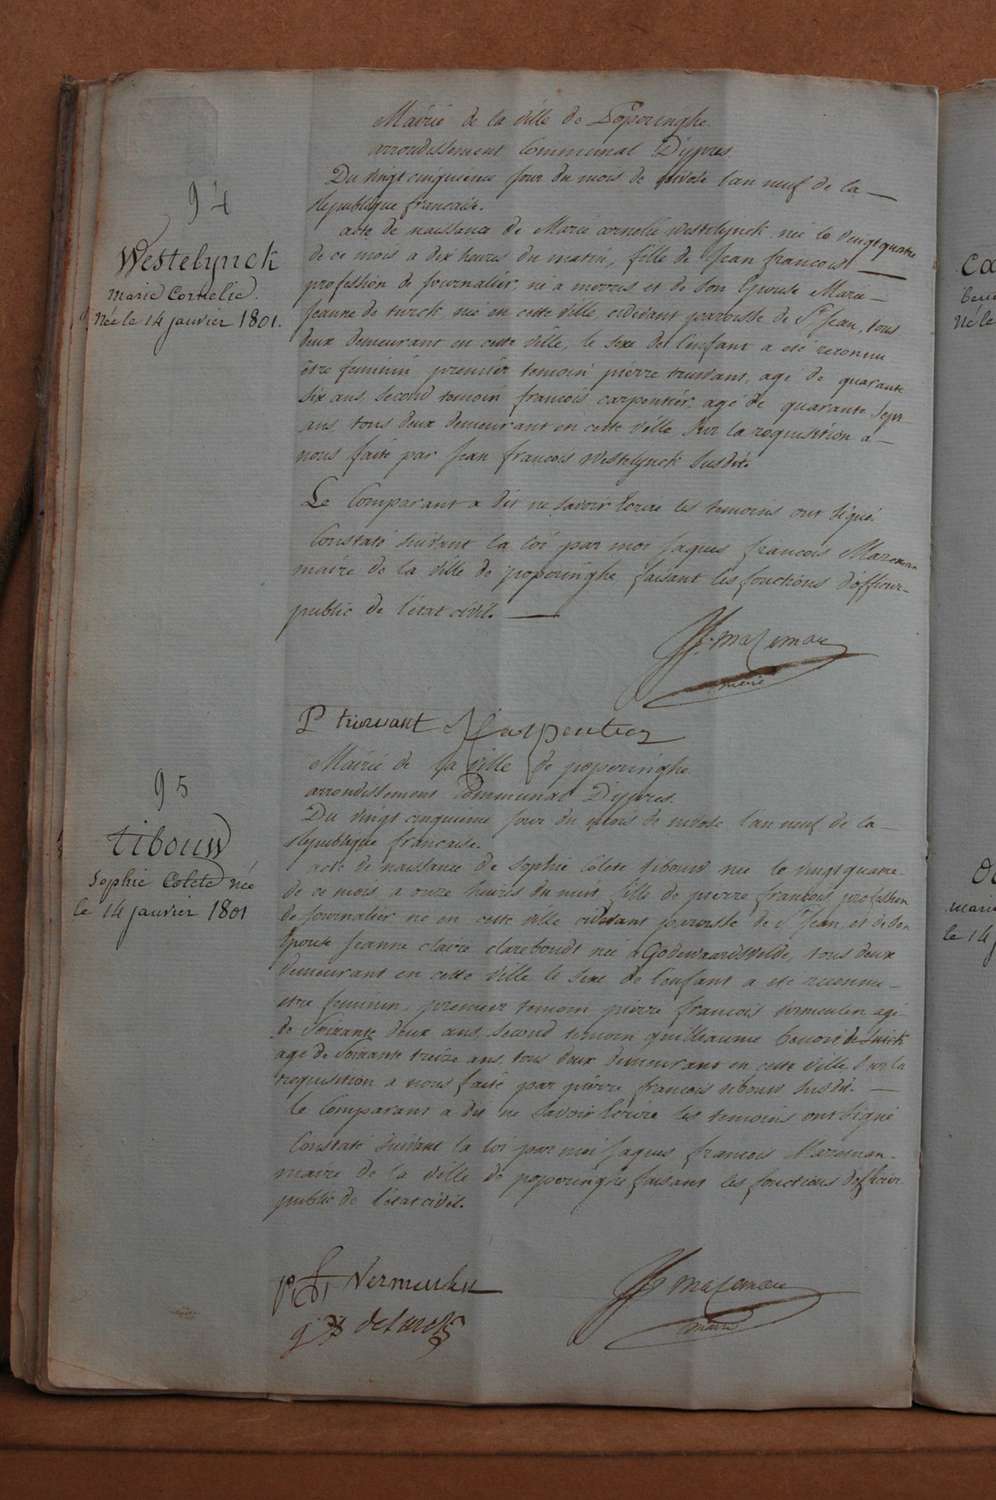 94
Westelynck
Marie Cornelie.
Née le 14 janvier 1801.
Mairie de la ville de Poperinghe
arrondissement Communal D'ypres.
Du vingt cinquieme jour du mois de nivose l'an neuf de la
Republique francaise.
acte de naissance de Marie cornelie westelynck née le vingt quatre
de ce mois a dix heures du matin, fille de jean francois
profession de journalier, né a merris et de son Epouse Marie
jeanne de turck née en cette ville, cidevant parroisse de St jean, tous
deux demeurant en cette ville, le sexe de l'enfant a eté reconnu
être feminin premier temoin pierre truwant, agé de quarante
six ans, second temoin francois carpentier, agé de quarante sept
ans tous deux demeurant en cette ville sur la requisition a
nous faite par jean francois westelynck susdit.
Le Comparant a dit ne savoir Ecrire les temoins ont signé.
Constaté suivant la loi par moi jaques francois Mazeman
maire de la ville de poperinghe faisant les fonctions d'officier
public de l'etat civil.
JF. mazeman
maire
P truwant F Carpentier
95
tibouw
Sophie Colete née
le 14 janvier 1801
Mairie de la ville de poperinghe
arrondissement Communal D'ypres.
Du vingt cinquieme jour du mois de nivose l'an neuf de la
Republique francaise.
acte de naissance de Sophie Colete tibouw née le vingt quatre
de ce mois a onze heures du nuit fille de pierre francois, profession
de journalier né en cette ville cidevant parroisse de St jean, et de son
Epouse jeanne claire clareboudt née a Godewaersvelde, tous deux
demeurant en cette ville le sexe de l'enfant a eté reconnu
etre feminin, premier temoin pierre francois vermeulen agé
de soixante deux ans, second temoin guilleaume
agé de soixante treize ans, tous deux demeurant en cette ville sur la
requisition a nous faite par pierre francois tibouw susdit.
le Comparant a dit ne savoir Ecrire les temoins ont signé
Constaté suivant la loi par moi jaques francois Mazeman
maire de la ville de poperinghe faisant les fonctions d'officier
public de l'etat civil.
Vermeulen
JF mazeman
maire